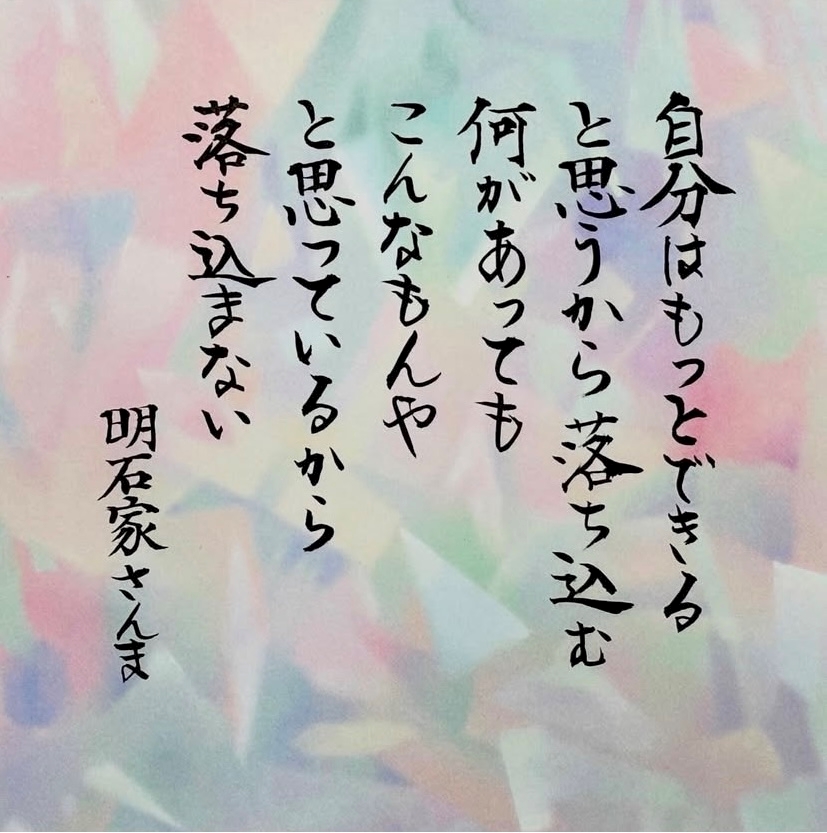 自分はもっとできる
と思うから落ち込む
何があっても
こんなもんや
と思っているから
落ち込まない
明石家さんま